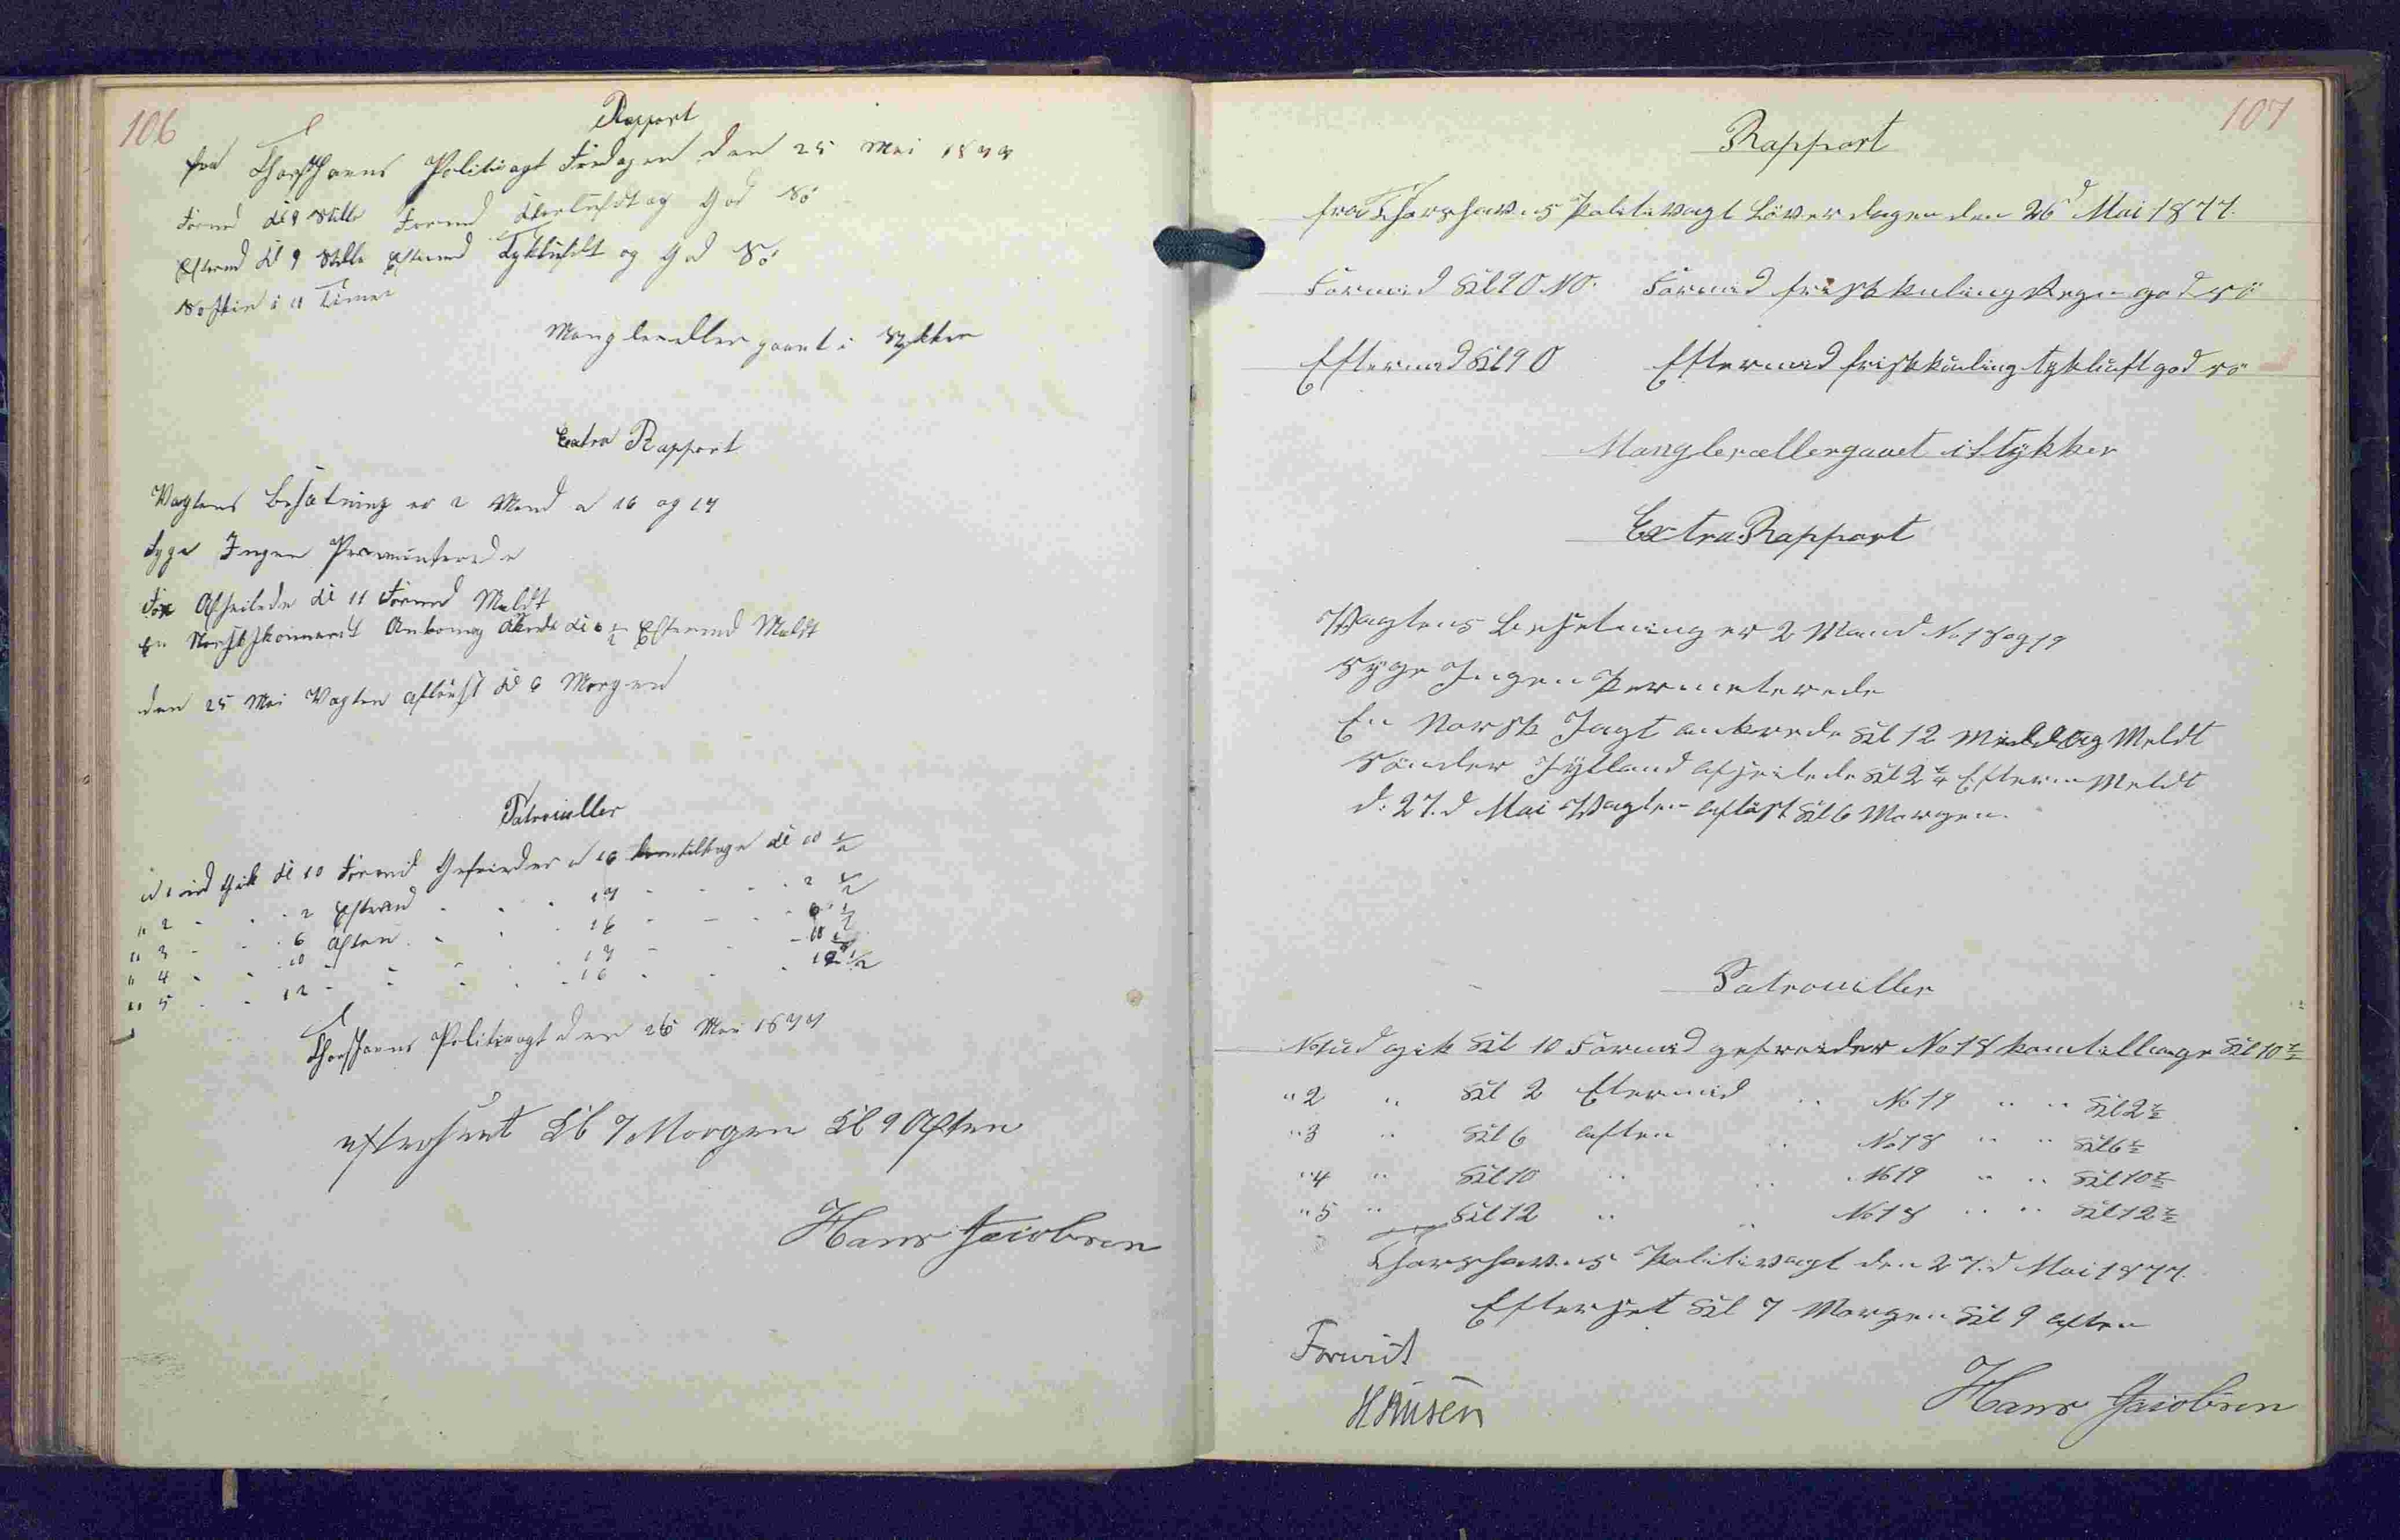 106
Rapport
fra Thorshavns Politivagt Fredagen den 25 Mai 1877
Formd Kl 9 Stille Formd Klarluft og God Sø
Eftermd Kl 9 Stille Eftermd Tykluft og God Sø
i 11 Timer
Mangler eller gaaet i Stykker
Extra Rapport
Vagtens Besætning er 2 Mand N 16 og 17
Syge Ingen Permiterede
Fox Afseilede Kl 11 Formd Meldt
En Norsk Skonnert Ankom og Kl 6 ½ Eftermd Meldt
den 25 Mai Vagten afløst Kl 6 Morgen
Patrouiller
N 1 ud Gik Kl 10 Formid Gefreider N 16 kom tilbage Kl 10 ½
" 2 - - - 2 Eftermd - - - 17 - - - 2 ½
" 3 - - - 6 Aften - - - 16 - - - 6 ½
" 4 - - - 10 - - - - 17 - - - 10 ½
" 5 - - - 12 - - - - 16 - - - 12 ½
Thorshavns Politivagt den 26 Mai 1877
efterseet Kl 7 Morgen Kl 9 Aften
Hans Jacobsen
107
Rapport
fra Thorshavns Politivagt Löverdagen den 26d Mai 1877.
Formid Kl 9 O NO. Formid frisk kuling Regn god sö
Eftermid Kl 9 O Eftermid frisk kuling tykluft god sö
Mangler ællergaaet i Stykker
Extra Rapport
Vagtens Besetning er 2 Mand No 18 og 19
Syge Ingen Permeterede
En Norsk Jagt ankrede Kl 12 Middag Meldt
Sönder Jylland afseilede Kl 2 ¼ Efterm Meldt
d. 27.d Mai Vagten aflöst Kl 6 Morgen.
Patrouiller
No 1 ud gik Kl 10 Formid gefreider No 18 kom tillbage Kl 10 ½
" 2 " Kl 2 Etermid " No 19 " " Kl 2 ½
" 3 " Kl 6 aften " No 18 " " Kl 6 ½
" 4 " Kl 10 " " No 19 " " Kl 10 ½
" 5 " Kl 12 " " No 18 " " Kl 12 ½
Thorshavns Politivagt den 27.d Mai 1877.
Efterset Kl 7 Morgen Kl 9 aften
Forevist
Hans Jacobsen